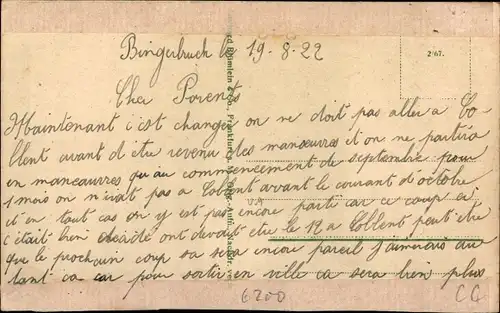 Bingerbruck le 19-8-22
2167.
Cher Parents
Maintenant c'est changer on ne doit pas aller a Co
blent avant d etre revenu des manœuvres et on ne partira
en manœuvres qu au commencement de septembre pour
1 mois on n irait pas a Coblent avant le courant d'octobre
et en tout cas on y est pas encore parti car ce coup ci
c'était bien décidé ont devait etre le 12 a Coblent peut etre
que le prochain coup sa sera encore pareil J aimerais au
tant ca car pour sortir en ville ca sera bien plus
6200
CC